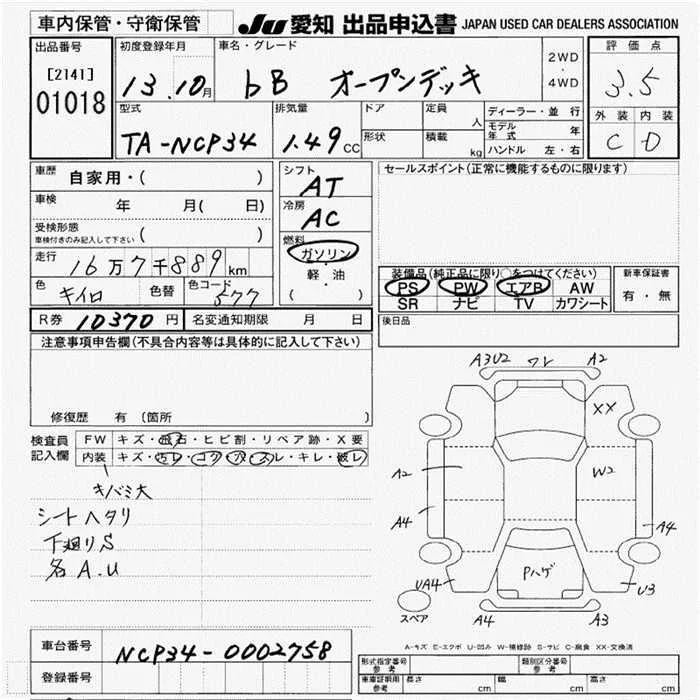 車内保管・守衛保管
JU 愛知 出品申込書 JAPAN USED CAR DEALERS ASSOCIATION
出品番号
[2141]
01018
初度登録年月
13.10月
車名・グレード
bB オープンデッキ
2WD
・
4WD
評価点
3.5
外装 内装
C D
型式
TA-NCP34
排気量
1.49CC
ドア
形状
定員
人
積載
kg
ディーラー・並行
モデル年式 年
ハンドル 左・右
車歴
自家用・( )
車検
年 月( 日)
受検形態
車検付きのみ記入して下さい ( )
走行
16万7千889km
色
キイロ
色替
色コード
577
シフト
AT
冷房
AC
燃料
ガソリン
軽・油
( )
セールスポイント(正常に機能するものに限ります)
装備品(純正品に限り○をつけてください)
PS PW エアB AW
SR ナビ TV カワシート
新車保証書
有・無
R券 10370円 名変通知期限 月 日
後日品
注意事項申告欄(不具合内容等は具体的に記入して下さい)
修復歴 有 (箇所
検査員
記入欄
FW キズ・飛石・ヒビ割・リペア跡・X要
内装 キズ・汚レ・コゲ・穴・スレ・キレ・破レ
キバミ大
シートヘタリ
下廻りS
各A.U
A3U2 ワレ A2
XX
A2
W2
A4
A4
Pハゲ
UA4
U3
スペア
A4
A3
A-キズ E-エクボ U-凹み W-補修跡 S-サビ C-腐食 XX-交換済
車台番号
NCP34-0002758
登録番号
形式指定番号
参考
類別区分番号
参考
車庫証明用
参考
長さ cm
幅 cm
高さ cm